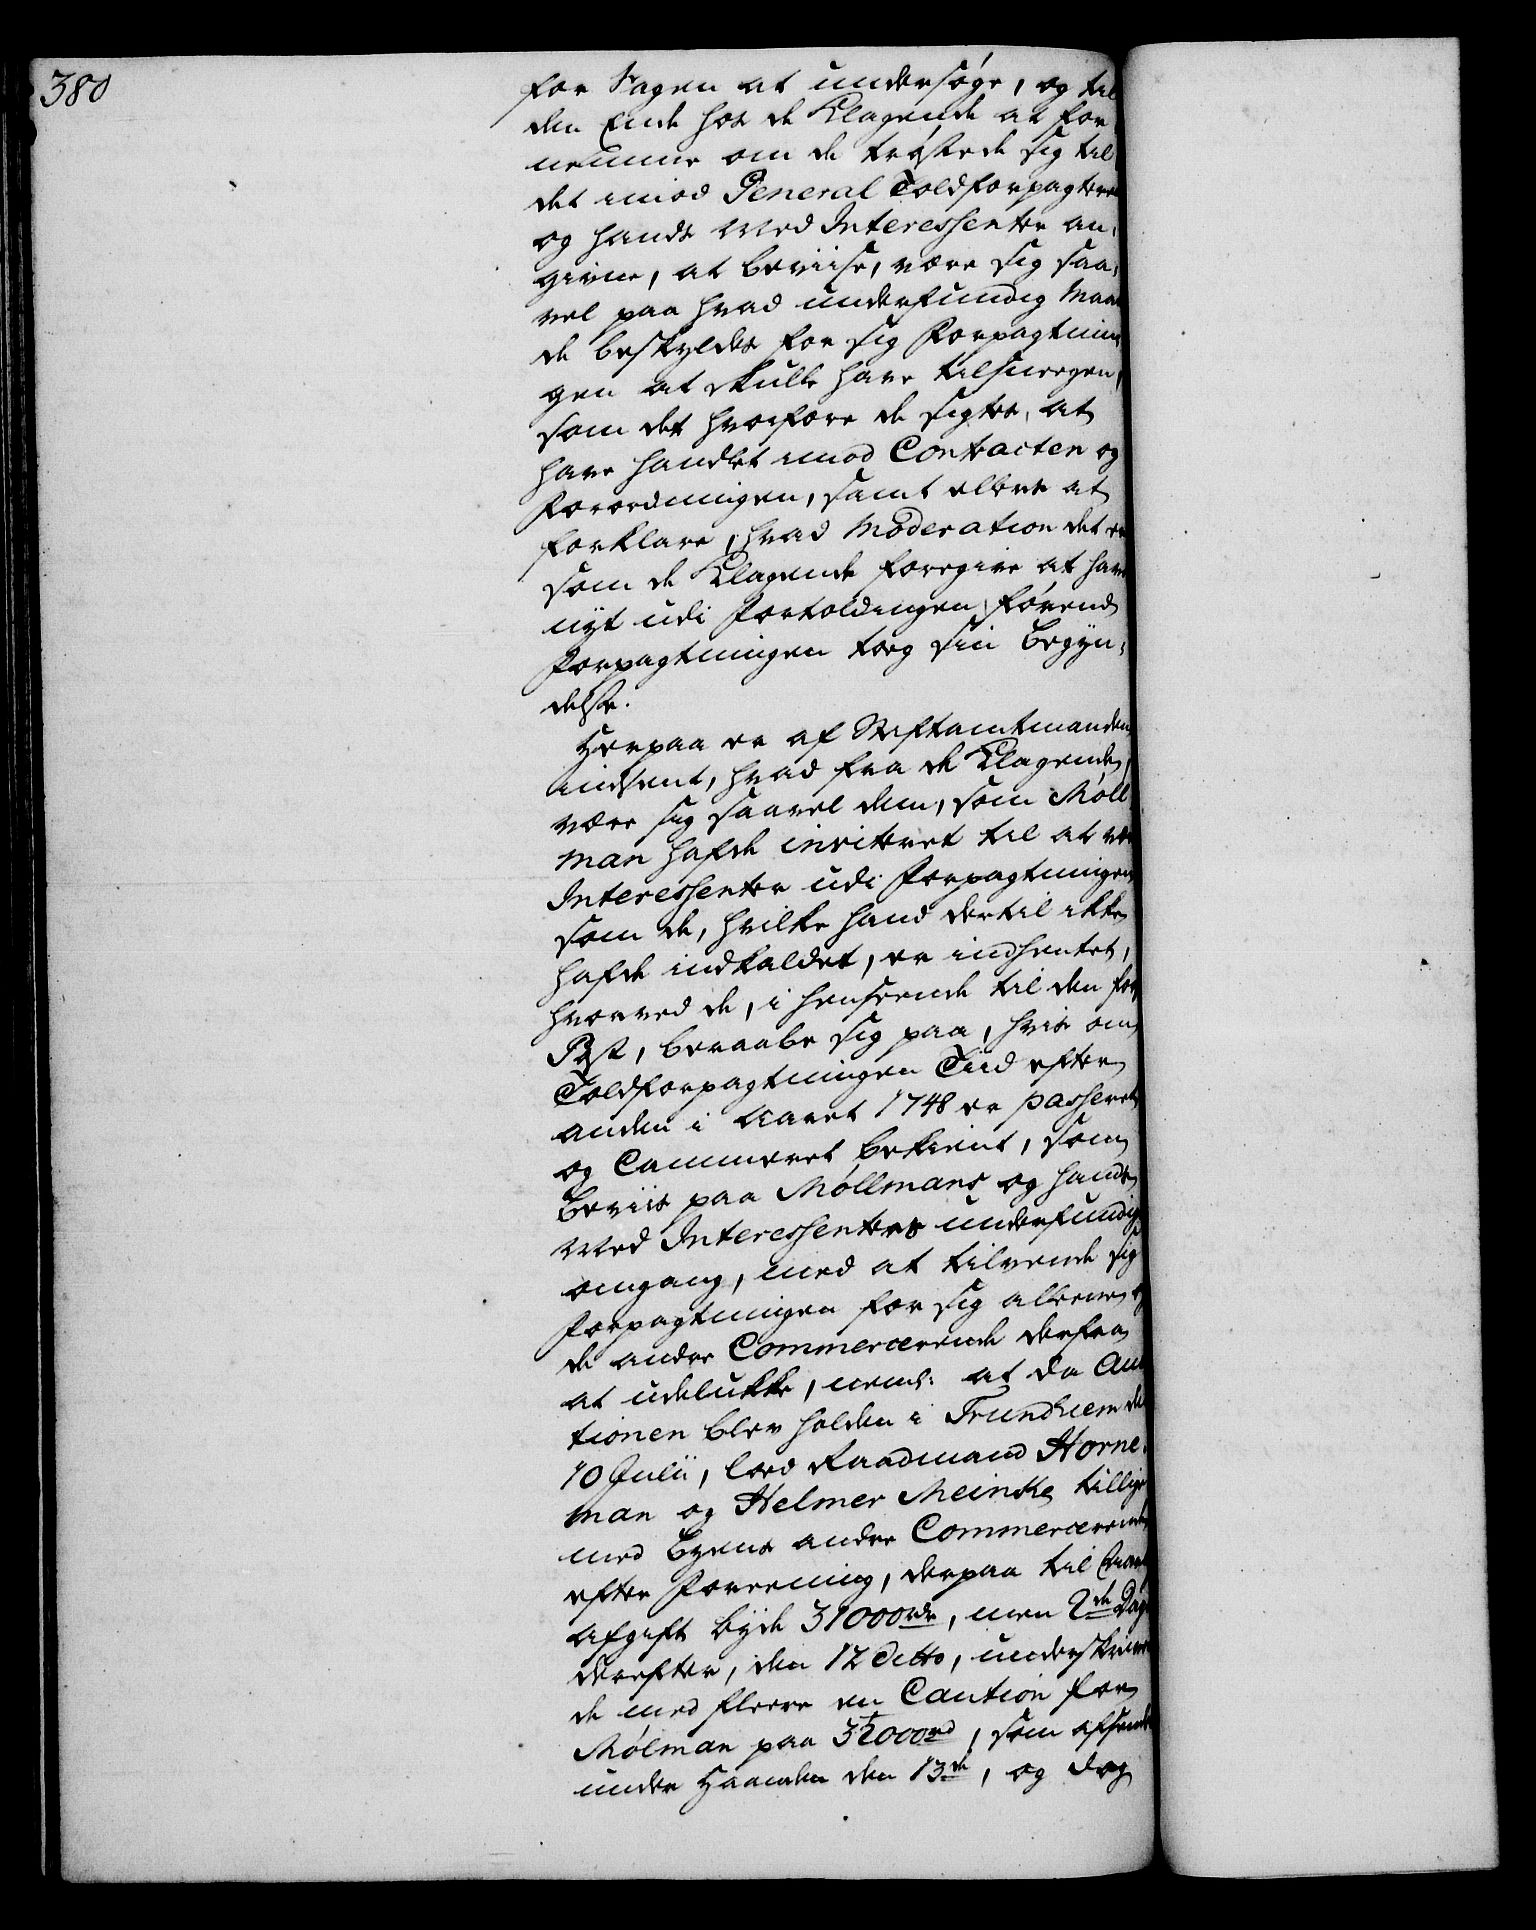 380
for Sagen at undersøge, og til
den Ende hos de Klagende at for
nemme om de trøstede sig til
det imod General Toldforpagteren
og hands Med Interessentere an,
givne, at beviise, være sig saa,
vel paa hvad underfundig Maade
de beskyldes for sig Forpagtnin
gen at skulle have tilsneegen,
som det hvorfore de sigtes, at
have handlet imod Contracten og
Forordningen, samt ellers at
forklare, hvad Moderation det er
som de Klagende foregive at have
nyt udi Fortoldingen, førend
Forpagtningen toeg sin Begyn,
delse.
Herpaa er af Stiftamtmanden
indsent, hvad fra de Klagende,
være sig saavel dem, som Møll
man hafde inviteret til at være
Interessentere udi Forpagtningen
som de, hvilke hand dertil ikke
hafde indkaldet, er indhentet,
hvorved de, i henseende til den første
Post, beraabe sig paa, hvis om
Toldforpagtningen Tiid efter
anden i Aaret 1748 er passeret
og Cammeret bekient, som
Beviis paa Møllmans og hands
Med Interessenters underfundige
omgang, med at tilvende sig
Forpagtningen for sig alleene og
de andre Commercerende derfra
at udelukke, neml: at da Auc
tionen blev holden i Trundhiem den
10 Julii, loed Raadmand Horne,
man og Helmer Meincke tillige
med Byens andre Commercerende
efter Foreening, derpaa til Aarlig
afgift byde 31000 rdr, men 2de Dage
derefter, den 12 ditto, underskriver
de med fleere en Caution for
Mølman paa 32000 rd, som afsendes
under Haanden den 13de, og dog